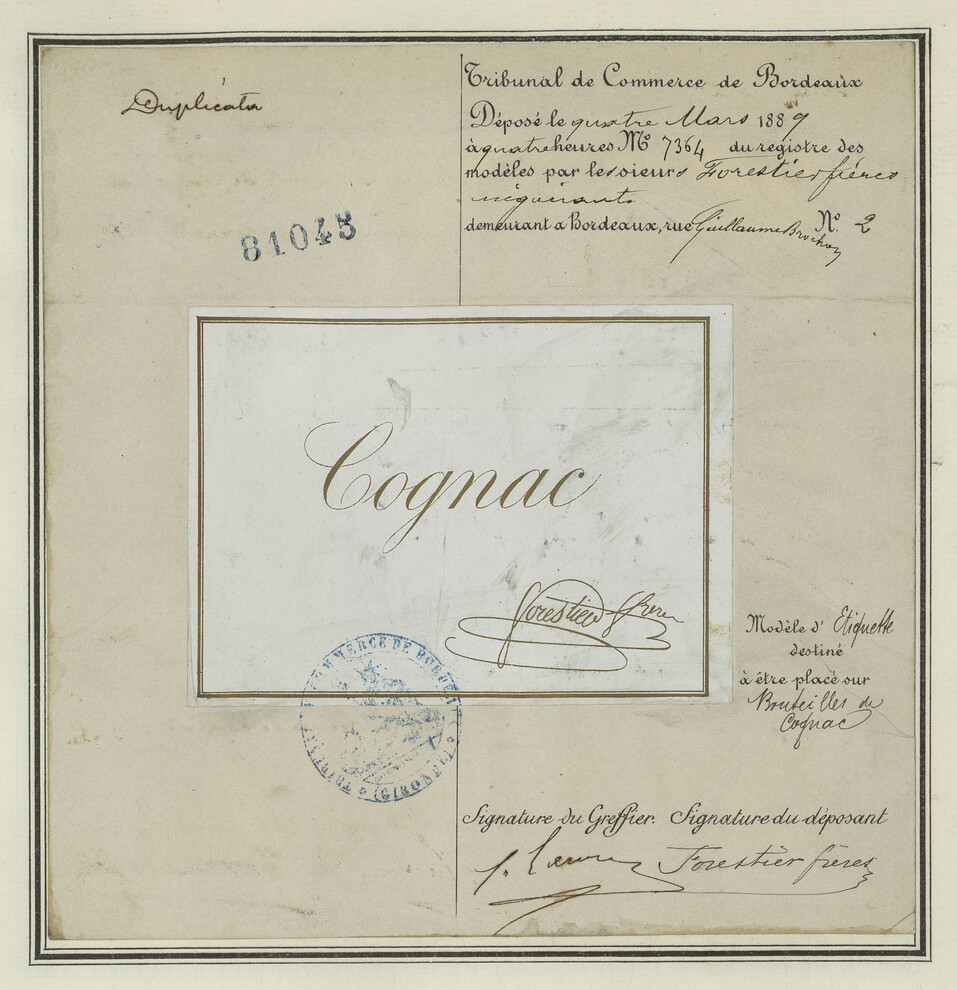 Duplicata
81043
Tribunal de Commerce de Bordeaux
Déposé le quatre Mars 1889
à quatre heures No 7364 du registre des
modèles par les sieurs Forestier frères
négociants
demeurant a Bordeaux, rue Guillaume Brochon No. 2
Cognac
Forestier frères
Modèle d' Etiquette
destiné
à être placé sur
Bouteilles de
Cognac
COMMERCE DE BORDEAUX
TRIBUNAL
(GIRONDE)
Signature du Greffier. Signature du déposant
Forestier frères